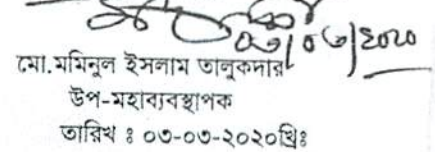 ০৩/০৩/২০২০
মো.মমিনুল ইসলাম তালুকদার
উপ-মহাব্যবস্থাপক
তারিখ ঃ ০৩-০৩-২০২০খ্রিঃ